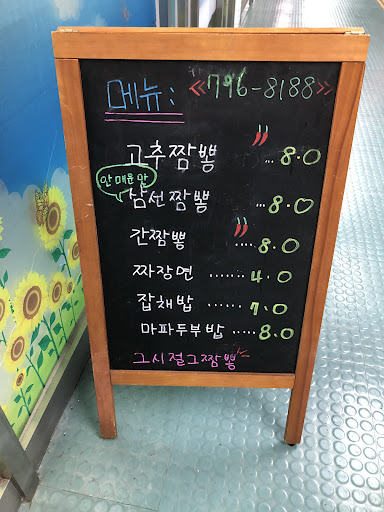 메뉴: «796-8188»
고추짬뽕 ... 8.0
안매운맛
남선짬뽕 .... 8.0
간짬뽕 ..... 8.0
짜장면 ....... 4.0
잡채밥 ...... 7.0
마파두부밥 ..... 8.0
그시절그짬뽕